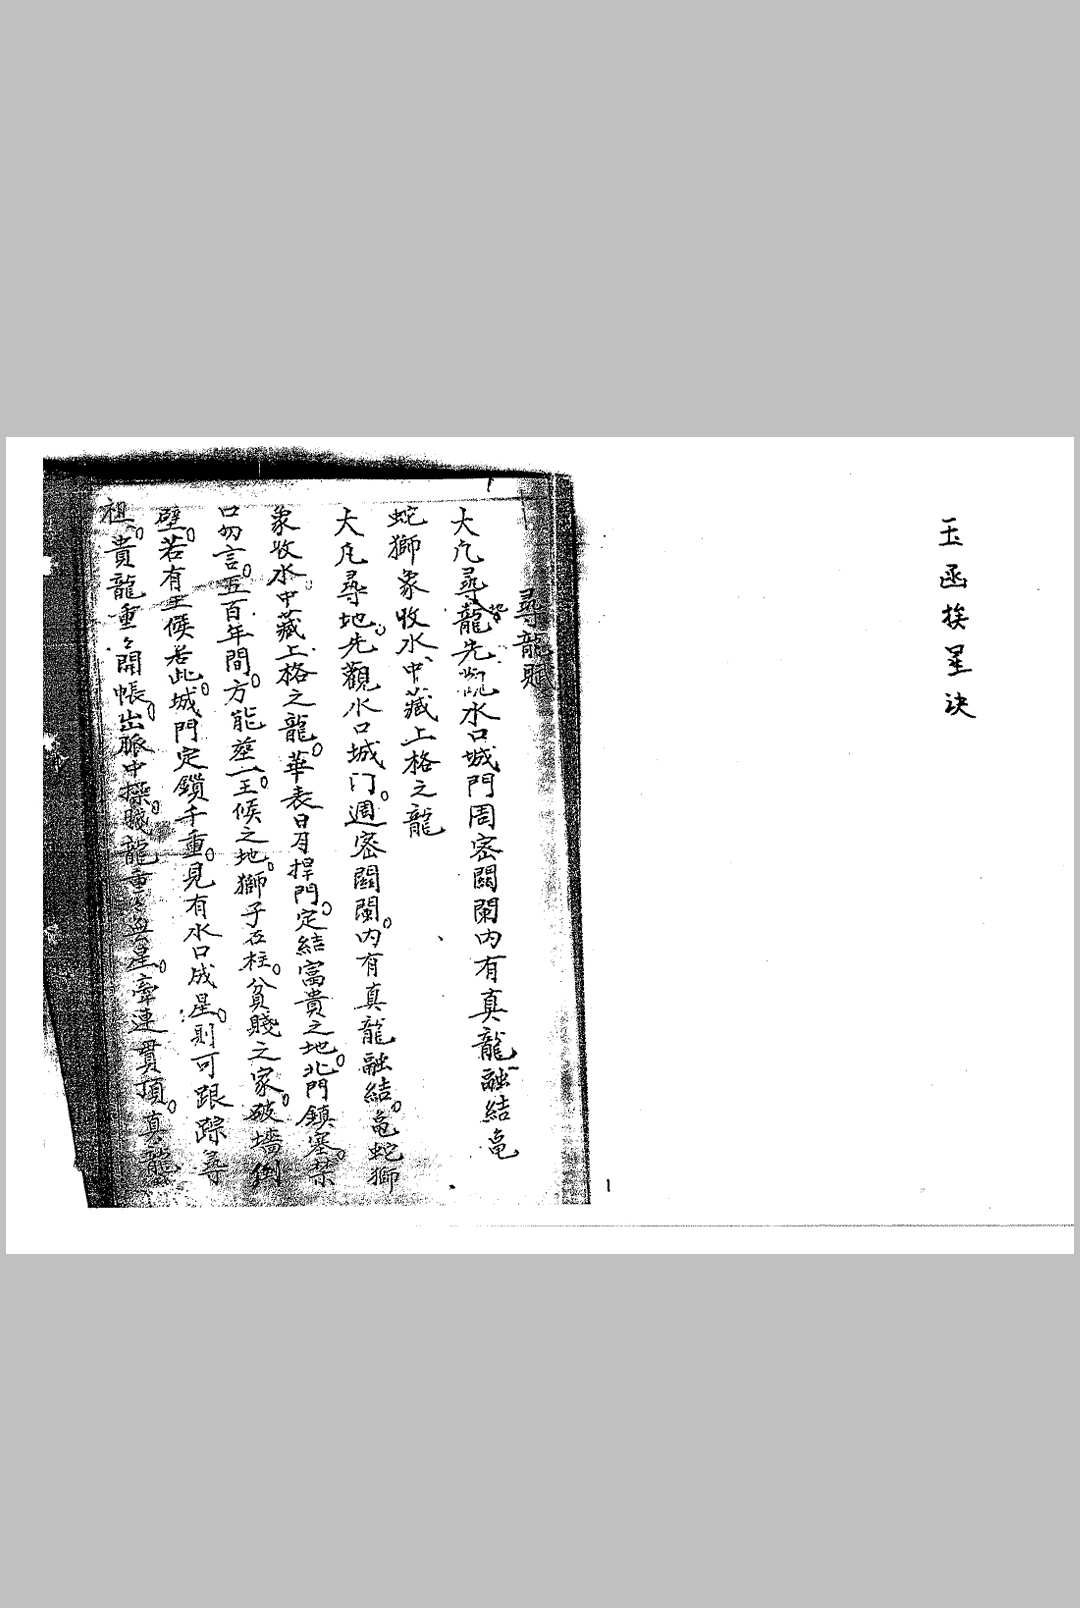 玉函挨星决
1
尋龍賦
大凢尋龍先觀水口城門周密闗闌内有真龍融結亀
蛇獅象收水中藏上格之龍
大凢尋地。先觀水口城门。週密闗闌。内有真龍融結。亀蛇獅
象收水。中藏上格之龍。華表日月捍門。定結富貴之地。北門鎮塞。禁
口勿言。五百年間。方能塟一王。候之地。獅子石柱。貧賤之家。破墻倒
壁。若有王候若此。城門定鎖千重。見有水口成星。則可跟踪尋
祖。貴龍重々開帳。出脈中操。賤龍重々無星。牽連貫頂。真龍